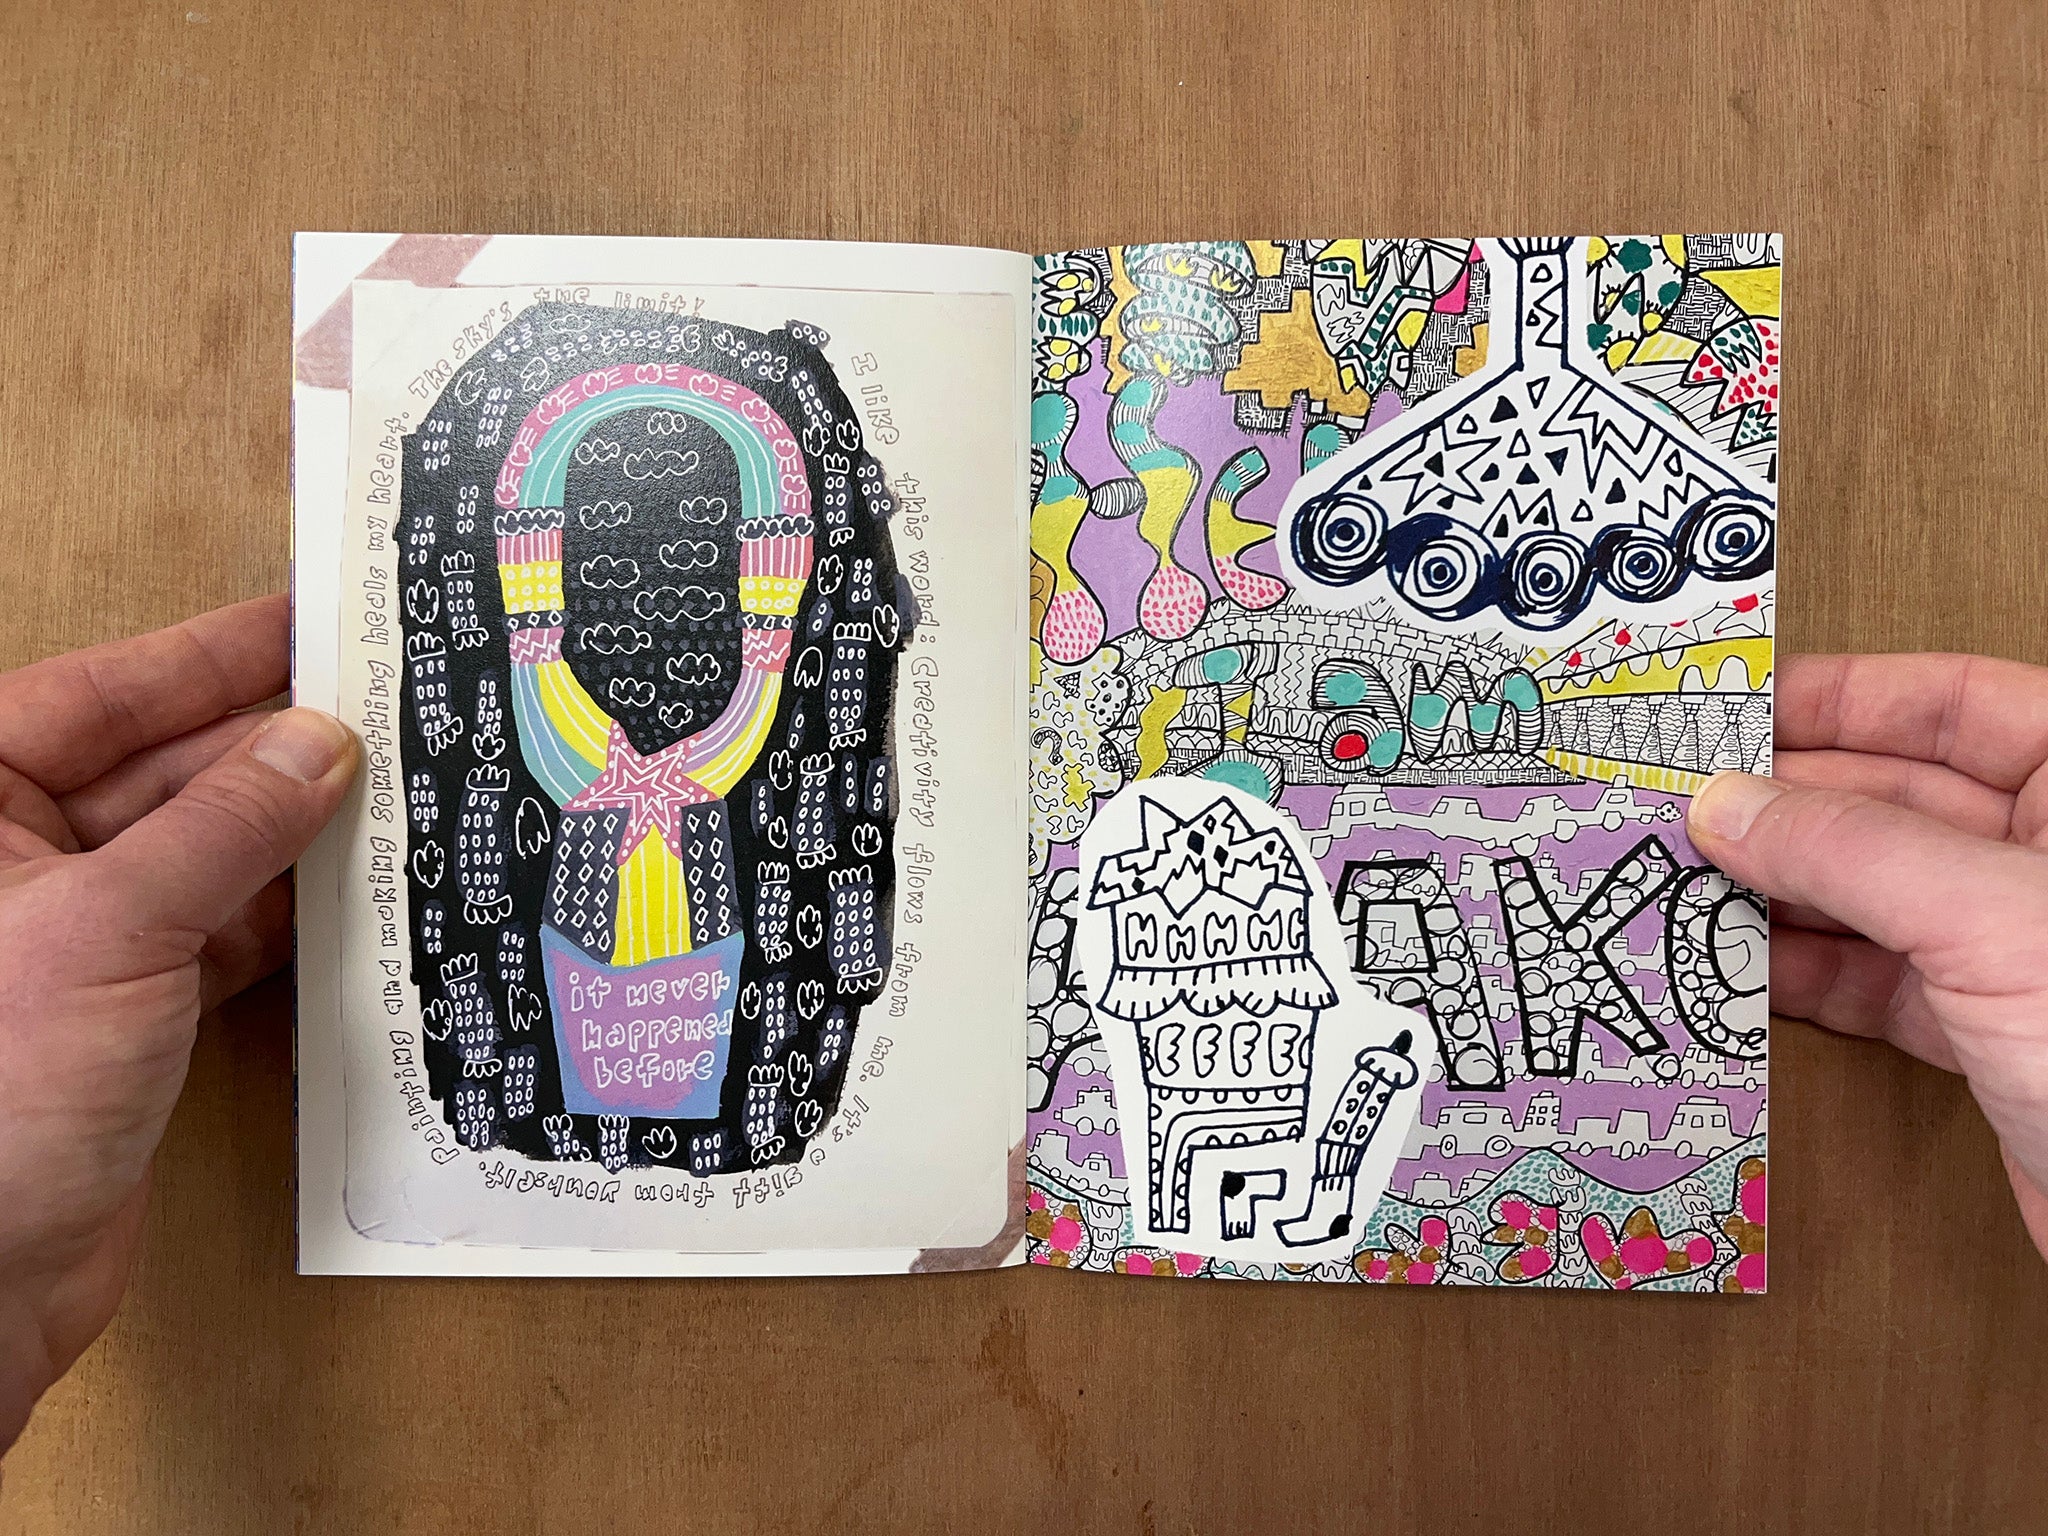 I like this word: Creativity flows from me. It's a gift from yourself.
Painting and making something heals my heart. The sky's the limit!
it never
happened
before
I am